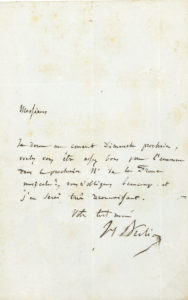 Messieurs
Je donne un concert Dimanche prochain,
voulez vous être assez bons pour l'annoncer
dans le prochain N° de la France
musicale, vous m'obligerez beaucoup et
j'en serai très reconnaissant.
Votre tout dévoué
H Berlioz